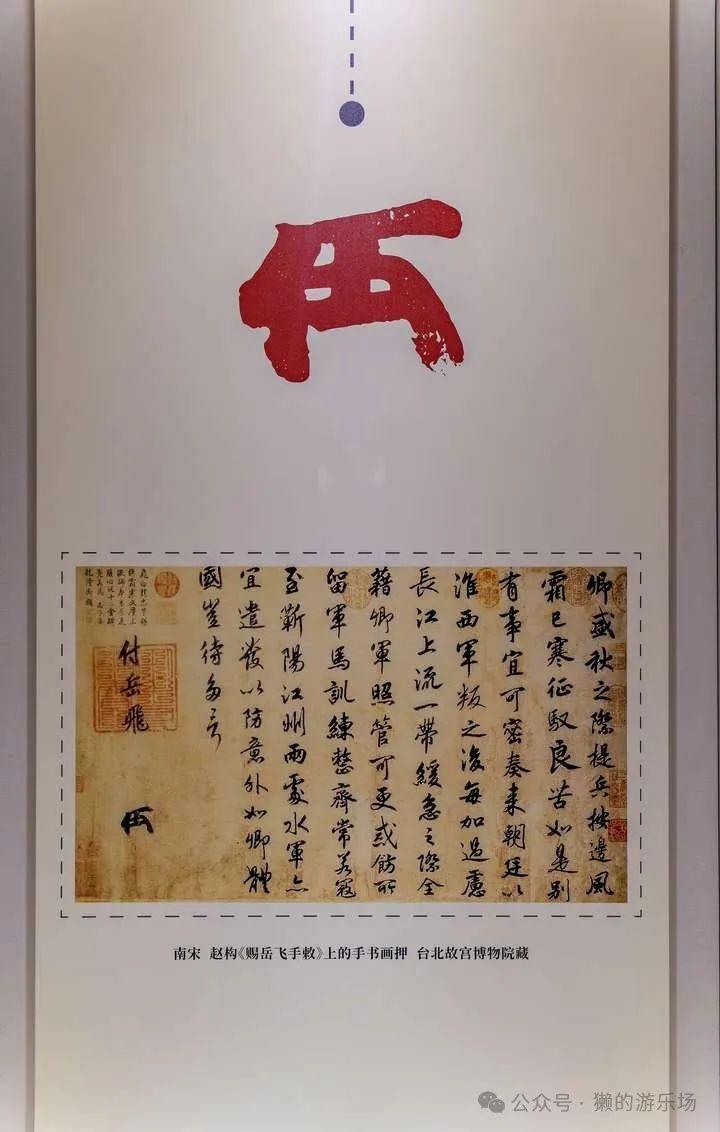 卿盛秋之際提兵按邊風
霜已寒征馭良苦如是別
有事宜可密奏來朝廷以
淮西軍叛之後每加過慮
長江上流一帶緩急之際全
藉卿軍照管可更戒飭所
留軍馬訓練整齊常若寇
至蘄陽江州兩處水軍亦
宜遣發以防意外如卿體
國豈待多言
付岳飛
南宋 赵构《赐岳飞手敕》上的手书画押 台北故宫博物院藏
公众号·獭的游乐场